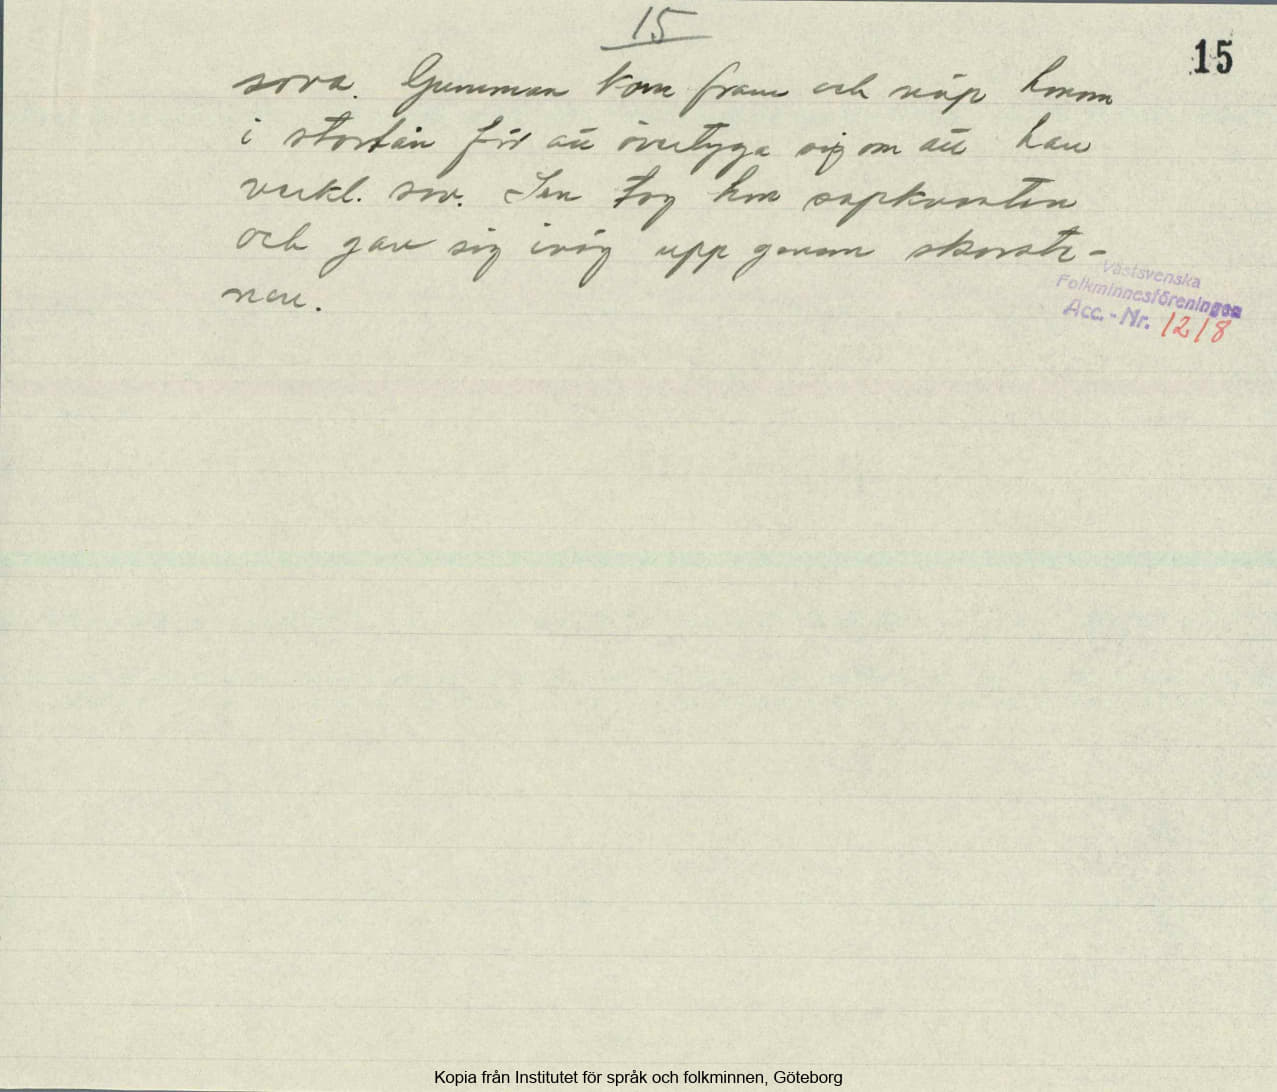 15
15
sova. Gumman kom fram och nöp honom
i stortån för att övertyga sig om att han
verkl. sov. Sen tog hon sopkvasten
och gav sig iväg upp genom skorste-
nen.
Västsvenska
Folkminnesföreningen
Acc.-Nr. 1218
Kopia från Institutet för språk och folkminnen, Göteborg